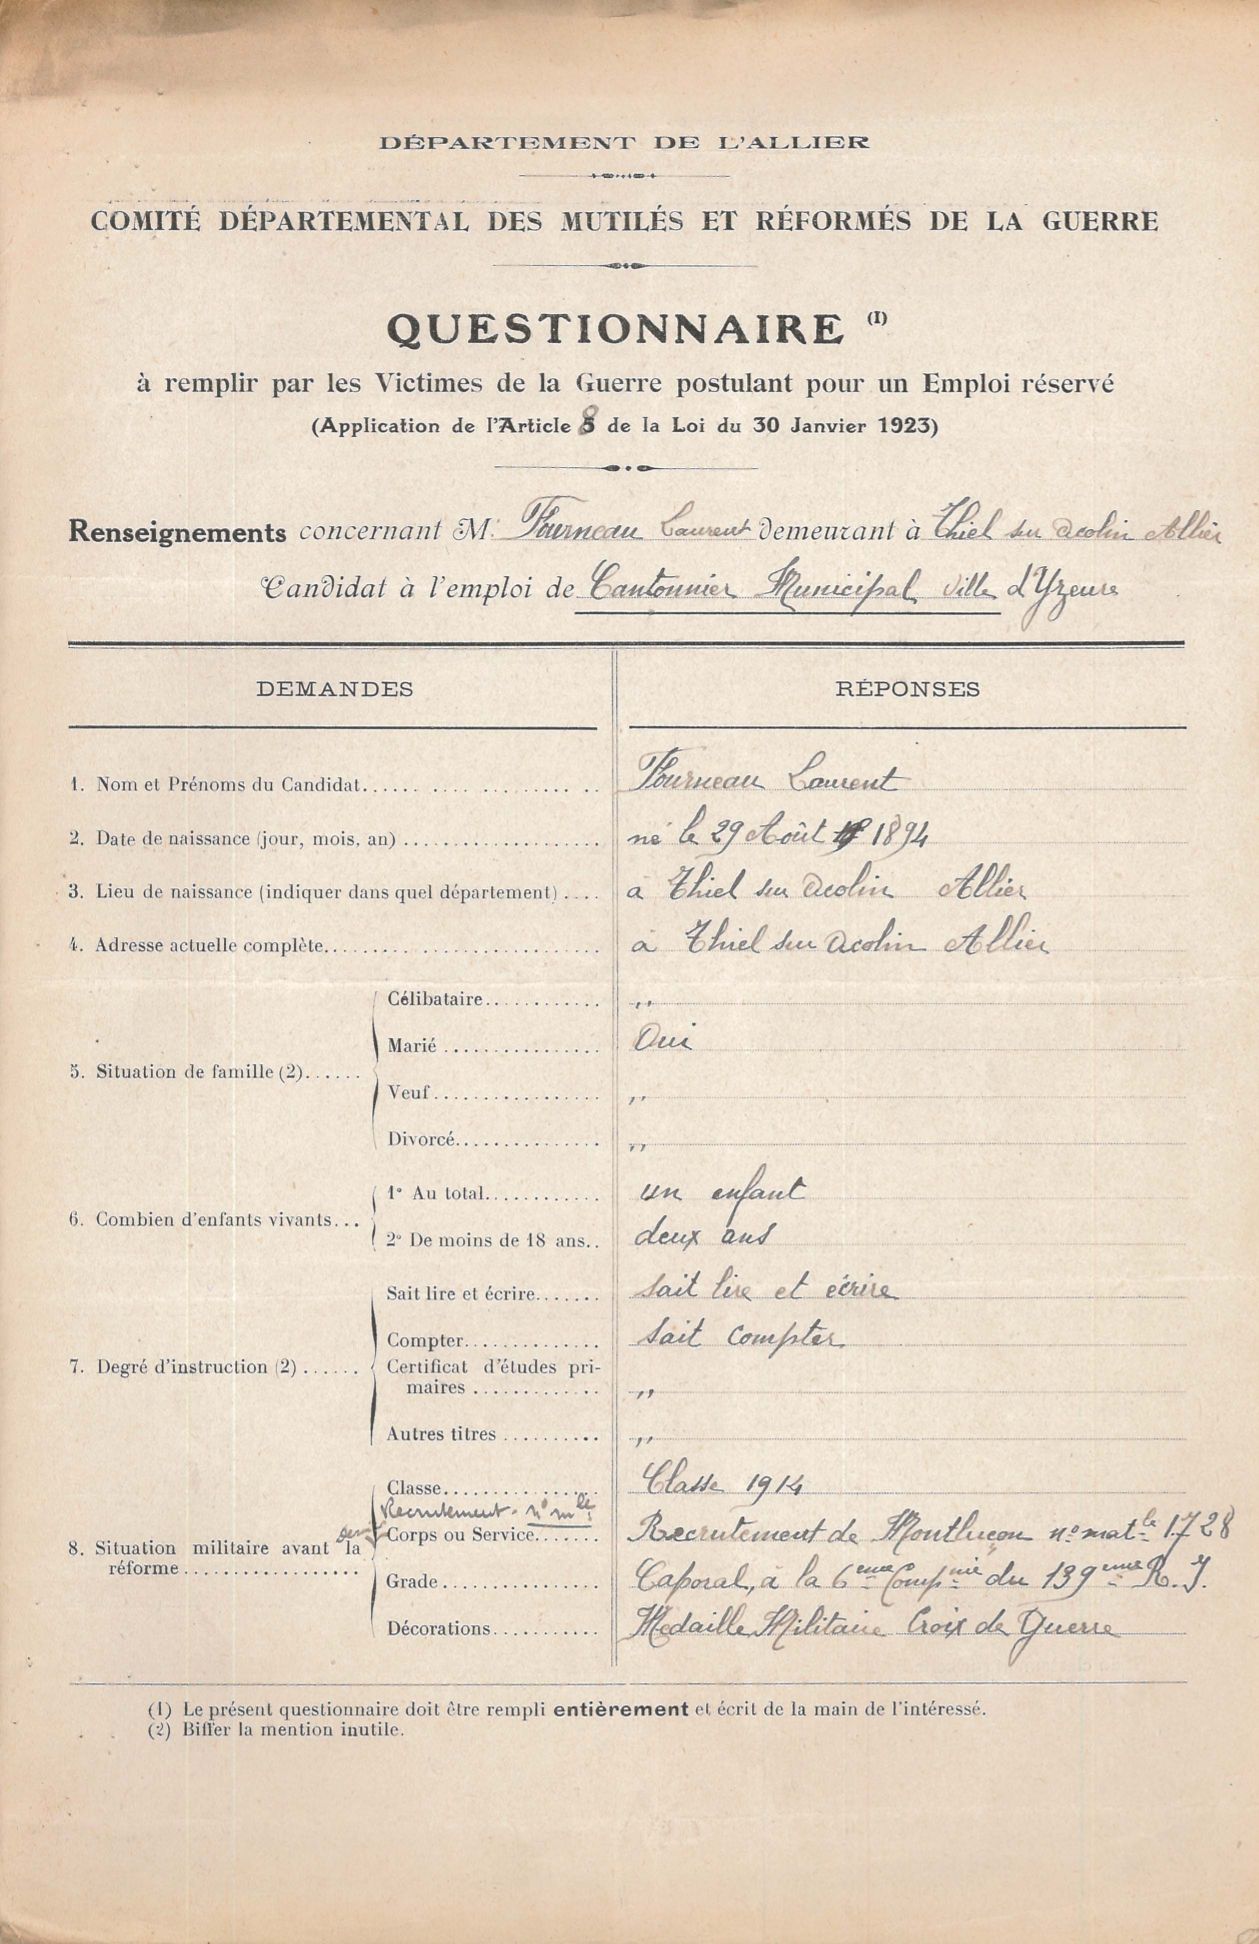 DÉPARTEMENT DE L'ALLIER
COMITÉ DÉPARTEMENTAL DES MUTILÉS ET RÉFORMÉS DE LA GUERRE
QUESTIONNAIRE (1)
à remplir par les Victimes de la Guerre postulant pour un Emploi réservé
(Application de l'Article 8 de la Loi du 30 Janvier 1923)
Renseignements concernant M. Fourneau Laurent demeurant à Thiel sur Acolin Allier
Candidat à l'emploi de Cantonnier Municipal Ville d'Yzeure
DEMANDES RÉPONSES
1. Nom et Prénoms du Candidat Fourneau Laurent
2. Date de naissance (jour, mois, an) né le 29 Août 1894
3. Lieu de naissance (indiquer dans quel département) à Thiel sur Acolin Allier
4. Adresse actuelle complète à Thiel sur Acolin Allier
5. Situation de famille (2)
Célibataire ,,
Marié Oui
Veuf ,,
Divorcé ,,
6. Combien d'enfants vivants
1° Au total un enfant
2° De moins de 18 ans deux ans
7. Degré d'instruction (2)
Sait lire et écrire sait lire et écrire
Compter sait compter
Certificat d'études pri-
maires ,,
Autres titres ,,
8. Situation militaire avant la
réforme
Classe Classe 1914
Recrutement - n° mle
Corps ou Service Recrutement de Montluçon n° matle 1728
Grade Caporal, à la 6eme Compnie du 139eme R.I.
Décorations Medaille Militaire Croix de Guerre
(1) Le présent questionnaire doit être rempli entièrement et écrit de la main de l'intéressé.
(2) Biffer la mention inutile.